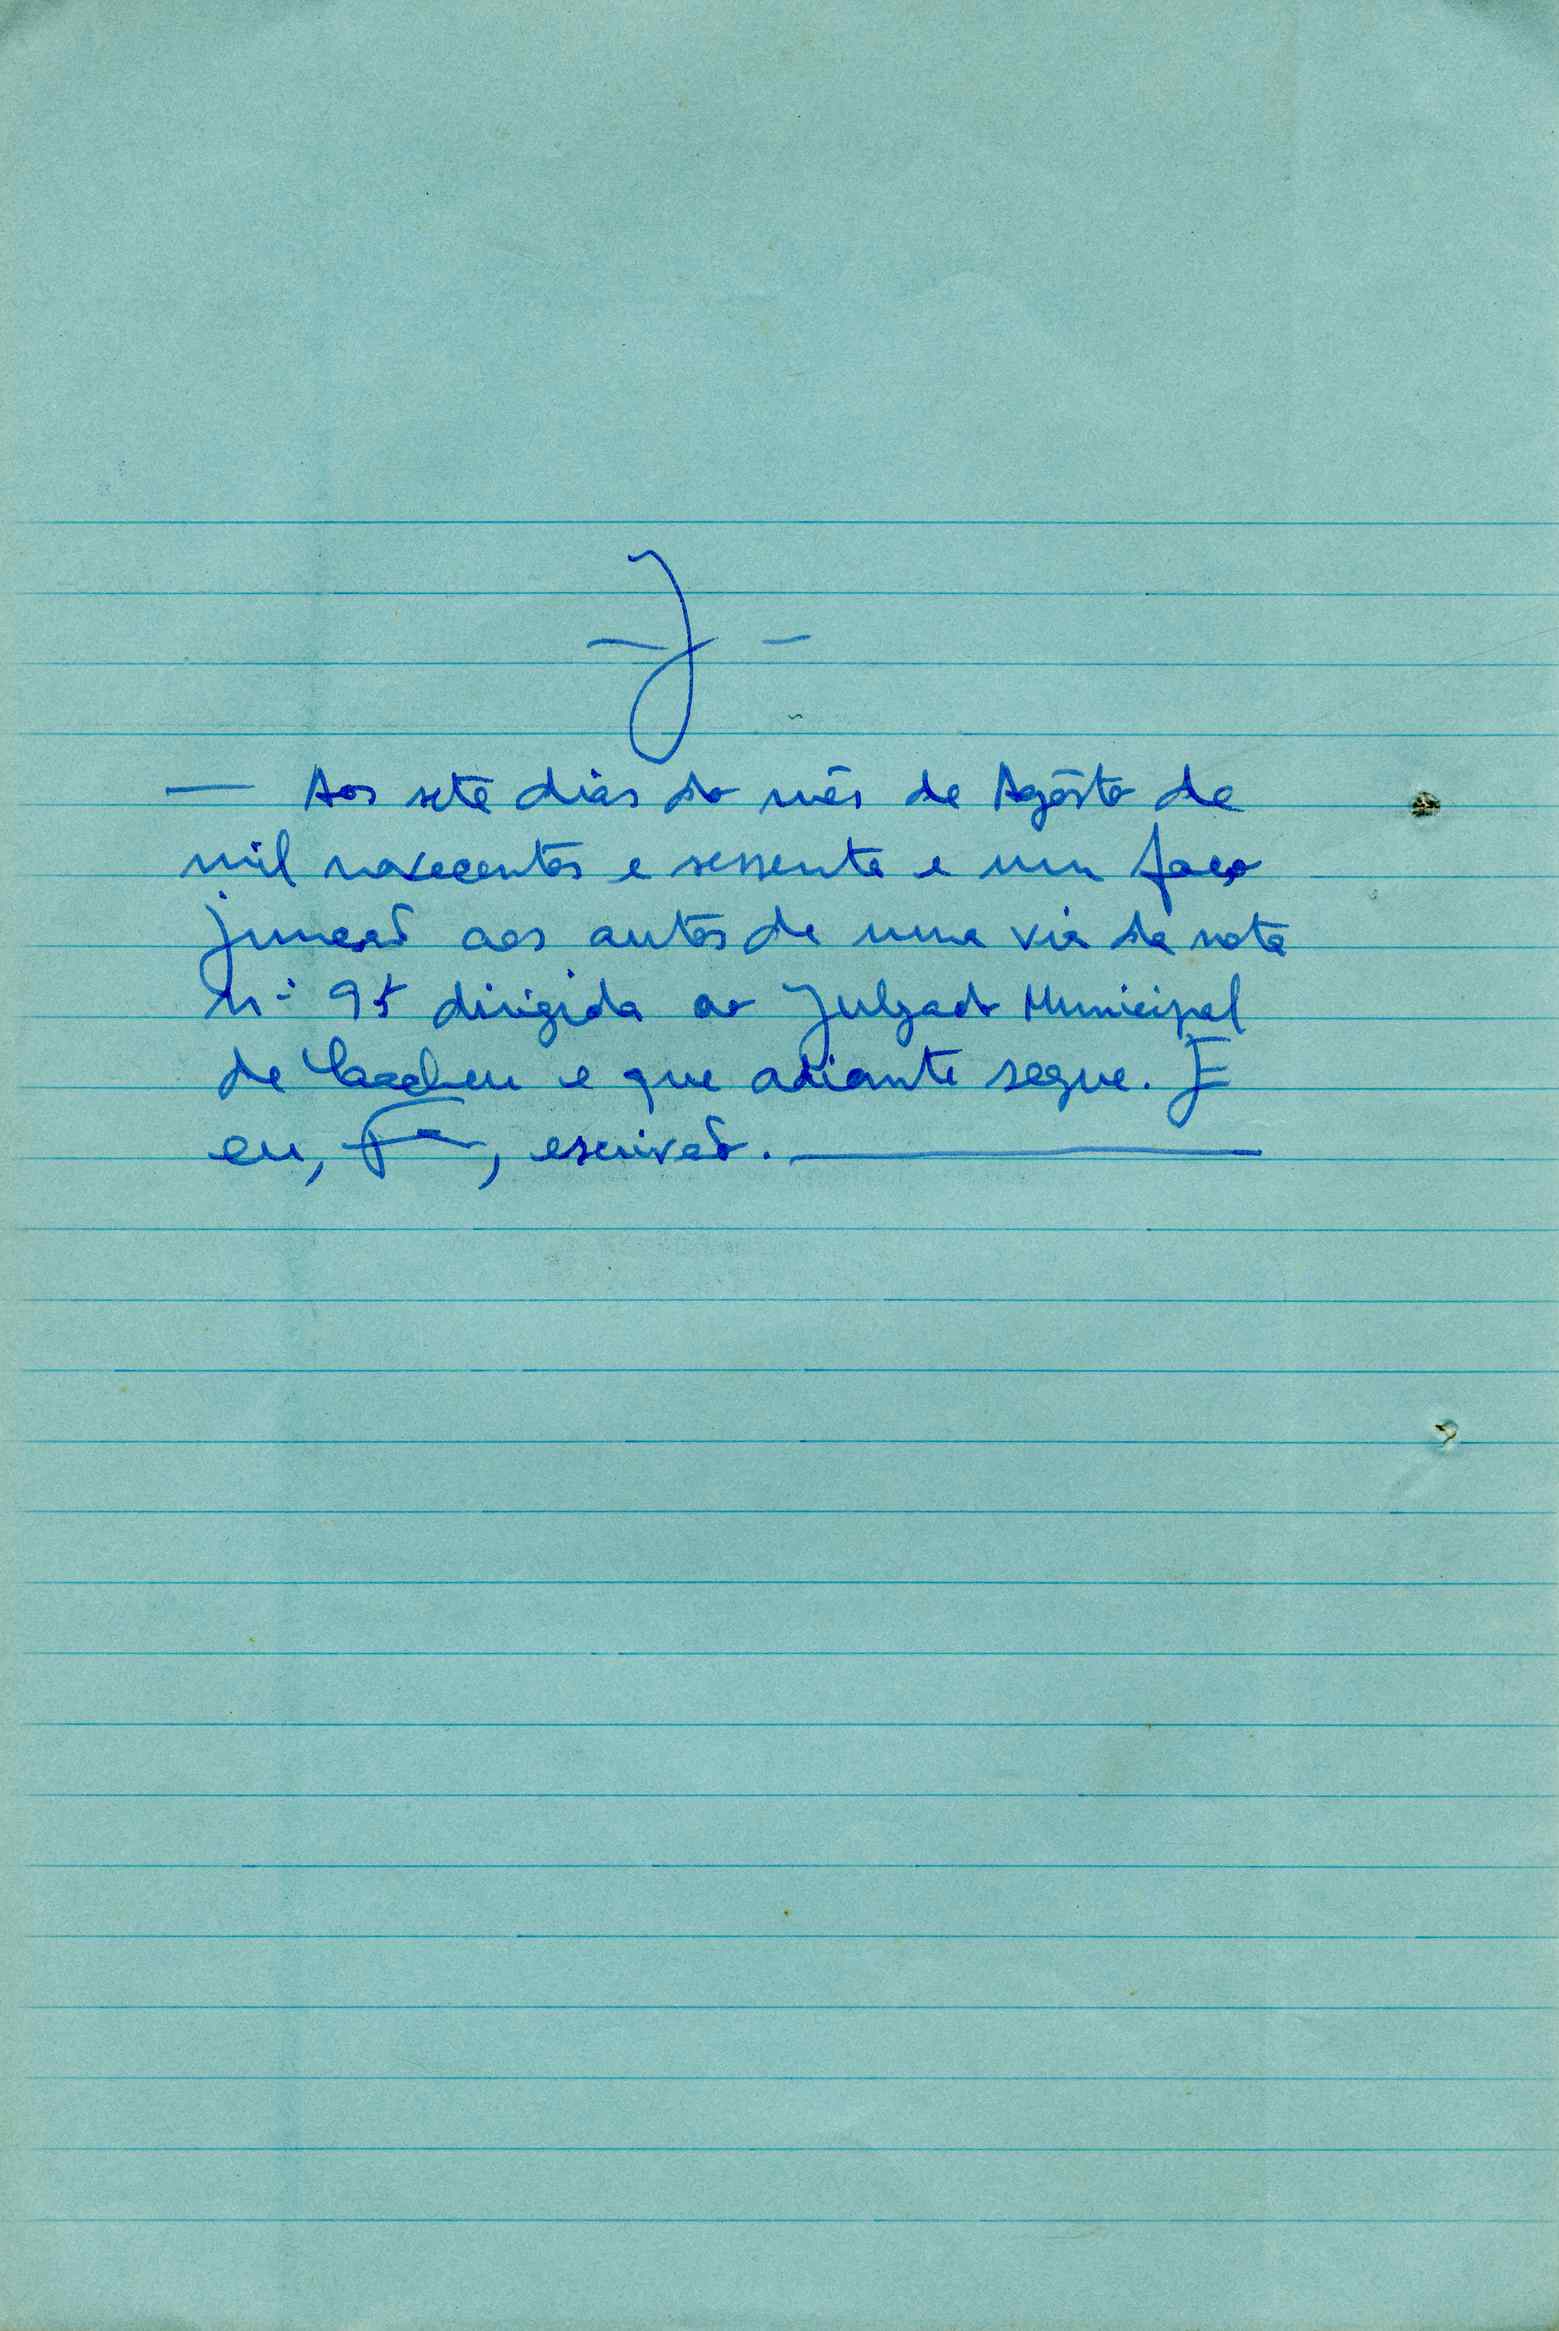 - J -
— Aos sete dias do mês de Agôsto de
mil novecentos e sessenta e um faço
junção aos autos de uma via da nota
nº 95 dirigida ao Julgado Municipal
de Cacheu e que adiante segue. E
eu, , escrivão.